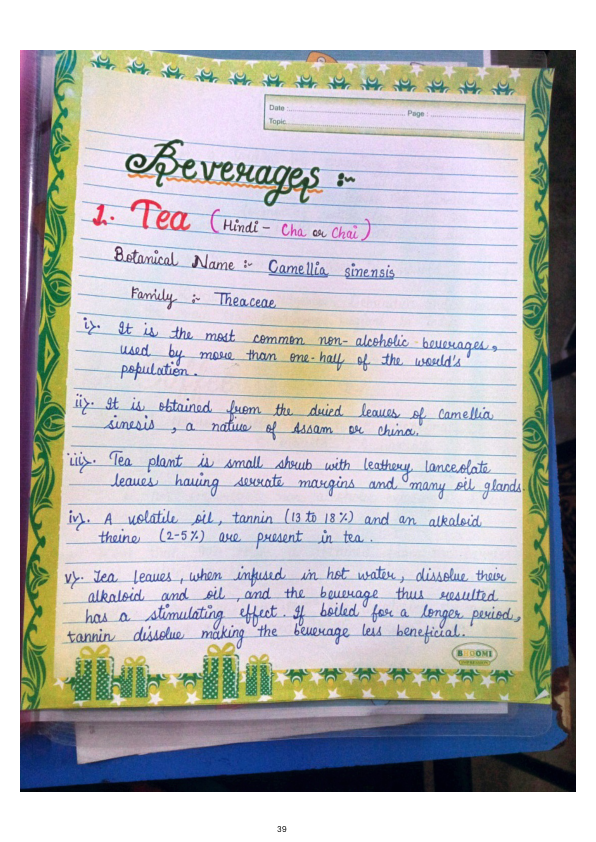 Date :
Page :
Topic
Beverages :~
1. Tea ( Hindi - Cha or Chai )
Botanical Name :- Camellia sinensis
Family :- Theaceae
i). It is the most common non-alcoholic beverages,
used by more than one-half of the world's
population.
ii). It is obtained from the dried leaves of camellia
sinesis, a native of Assam or china.
iii). Tea plant is small shrub with leathery lanceolate
leaves having serrate margins and many oil glands
iv). A volatile oil, tannin (13 to 18%) and an alkaloid
theine (2-5%) are present in tea.
v). Tea leaves, when infused in hot water, dissolve their
alkaloid and oil, and the beverage thus resulted
has a stimulating effect. If boiled for a longer period,
tannin dissolve making the beverage less beneficial.
BHOOMI
39